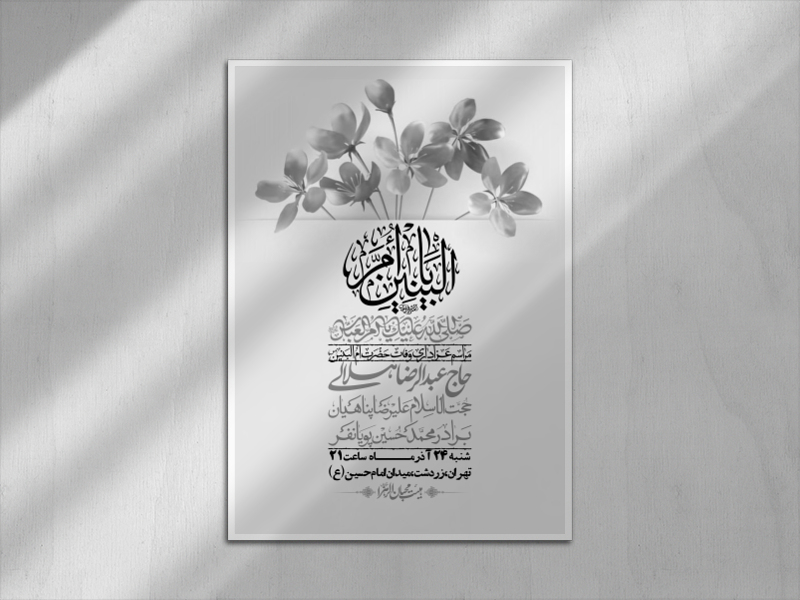 یا أم البنین
صلی الله علیک یا ام العباس
مراسم عزاداری وفات حضرت ام البنین
حاج عبدالرضا هلالی
حجت الاسلام علیرضا پناهیان
برادر محمدحسین پویانفر
شنبه ۲۴ آذر مــاه ساعت ۲۱
تهران، زردشت، میدان امام حسین (ع)